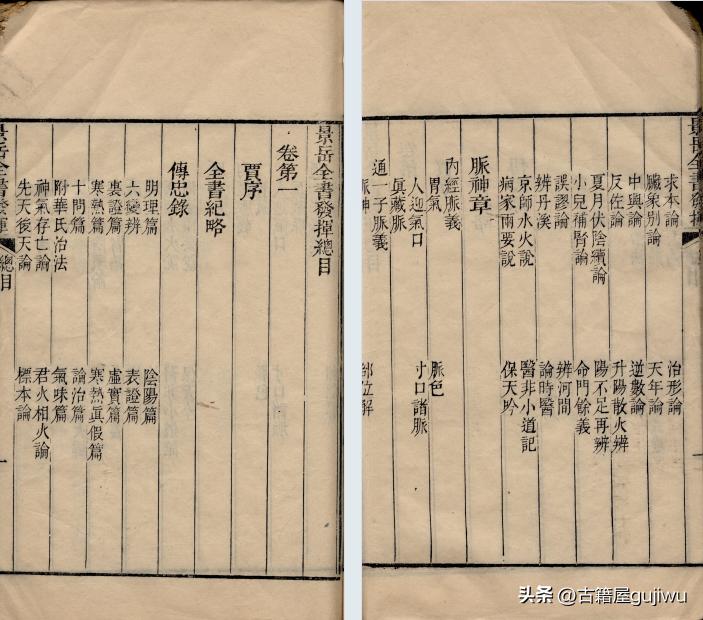 景岳全書發揮總目
卷第一
賈序
全書紀略
傳忠錄
明理篇　陰陽篇
六變辨　表證篇
裏證篇　虛實篇
寒熱篇　寒熱眞假篇
十問篇　論治篇
附華氏治法　氣味篇
神氣存亡論　君火相火論
先天後天論　標本論
景岳全書發揮　總目　一
景岳全書發揮
求本論　治形論
臟象別論　天年論
中興論　逆數論
反佐論　升陽散火辨
夏月伏陰續論　陽不足再辨
小兒補腎論　命門餘義
誤謬論　辨河間
辨丹溪　論時醫
京師水火說　醫非小道記
病家兩要說　保天吟
脈神章
內經脈義
胃氣　脈色
人迎氣口　寸口諸脈
眞藏脈
通一子脈義
脈神　部位解
头条 @古籍屋gujiwu